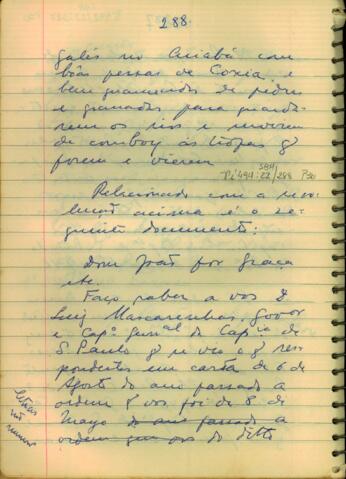 288.
galés no Cuiabá com
bôas pessas de Coxia, e
bem guarnecidas de pedrei
e granadas para guarda-
rem os rios e servirem
de comboy ás tropas q̃
forem e vierem
SBH
Pi 494:22/288 P50
Relacionado com a reso-
lução acima é o se-
guinte documento:
Dom João por Graça
etc.
Faço saber a vos D.
Luiz Mascarenhas, govor
e Capº Genal da Capia de
S. Paulo q̃ se veo o q̃ res-
pondestes em carta de 6 de
Agosto do ano passado a
ordem q̃ vos foi de 8 de
Mayo do ano passado a
ordem que vos do ditto